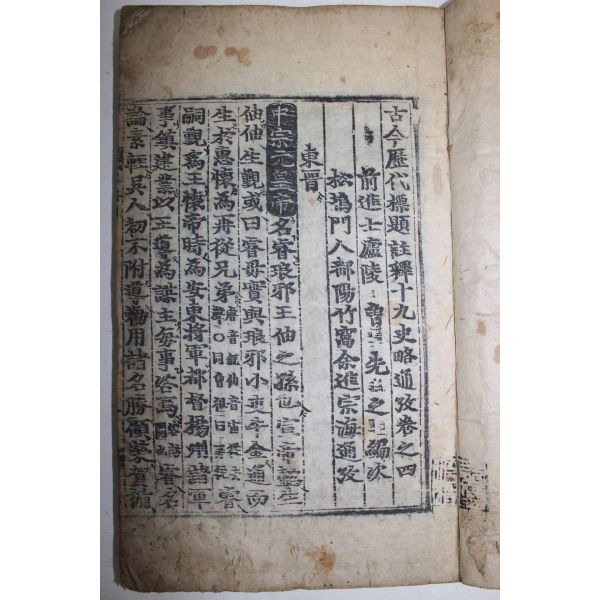 古今歷代標題註釋十九史略通攷卷之四
前進士廬陵曾先之編次
松塢門人鄱陽竹窩余進宗海通攷
東晋
中宗元皇帝名睿琅邪王伷之孫也宣帝生
伷伷生覲或曰睿母實與琅邪小吏牛金通而
生於惠懷為再從兄弟睿
嗣覲為王懷帝時為安東將軍都督揚州諸軍
事鎮建業以王導為謀主每事咨焉睿名
論素輕吳人初不附導勸用諸名勝顧榮賀循